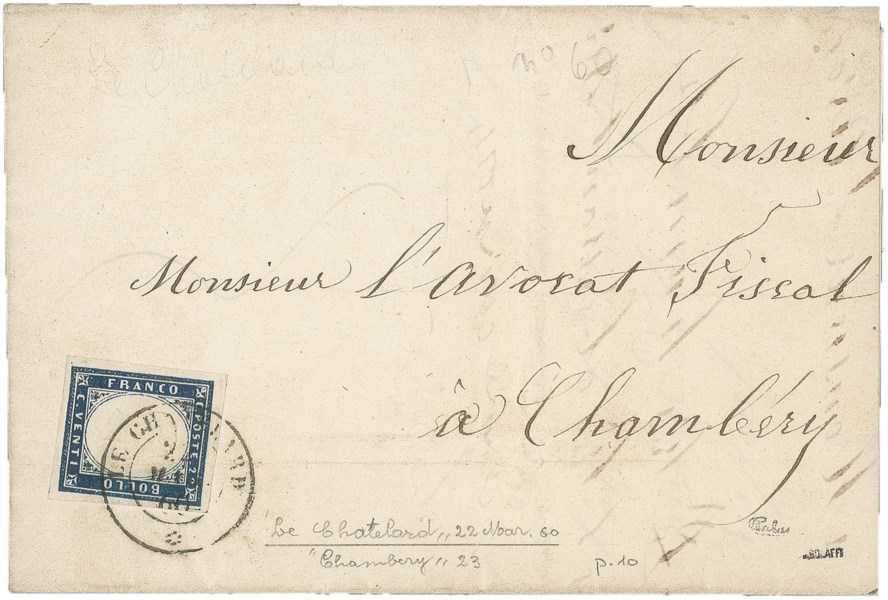 Le Chatelard
n° 60
Monsieur
Monsieur l'avocat Fiscal
à Chambéry
FRANCO
C. VENTI
POSTE 20
BOLLO
LE CH ARD
"Le Chatelard" 22 Mar. 60
"Chambery" 23
p. 10